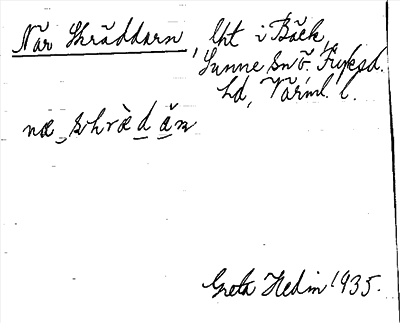 När Skräddarn, lht i Bäck,
Sunne snö. Fryksd.
hd, Värml. l.
næ skræ̀dạṇ
Greta Hedin 1935.